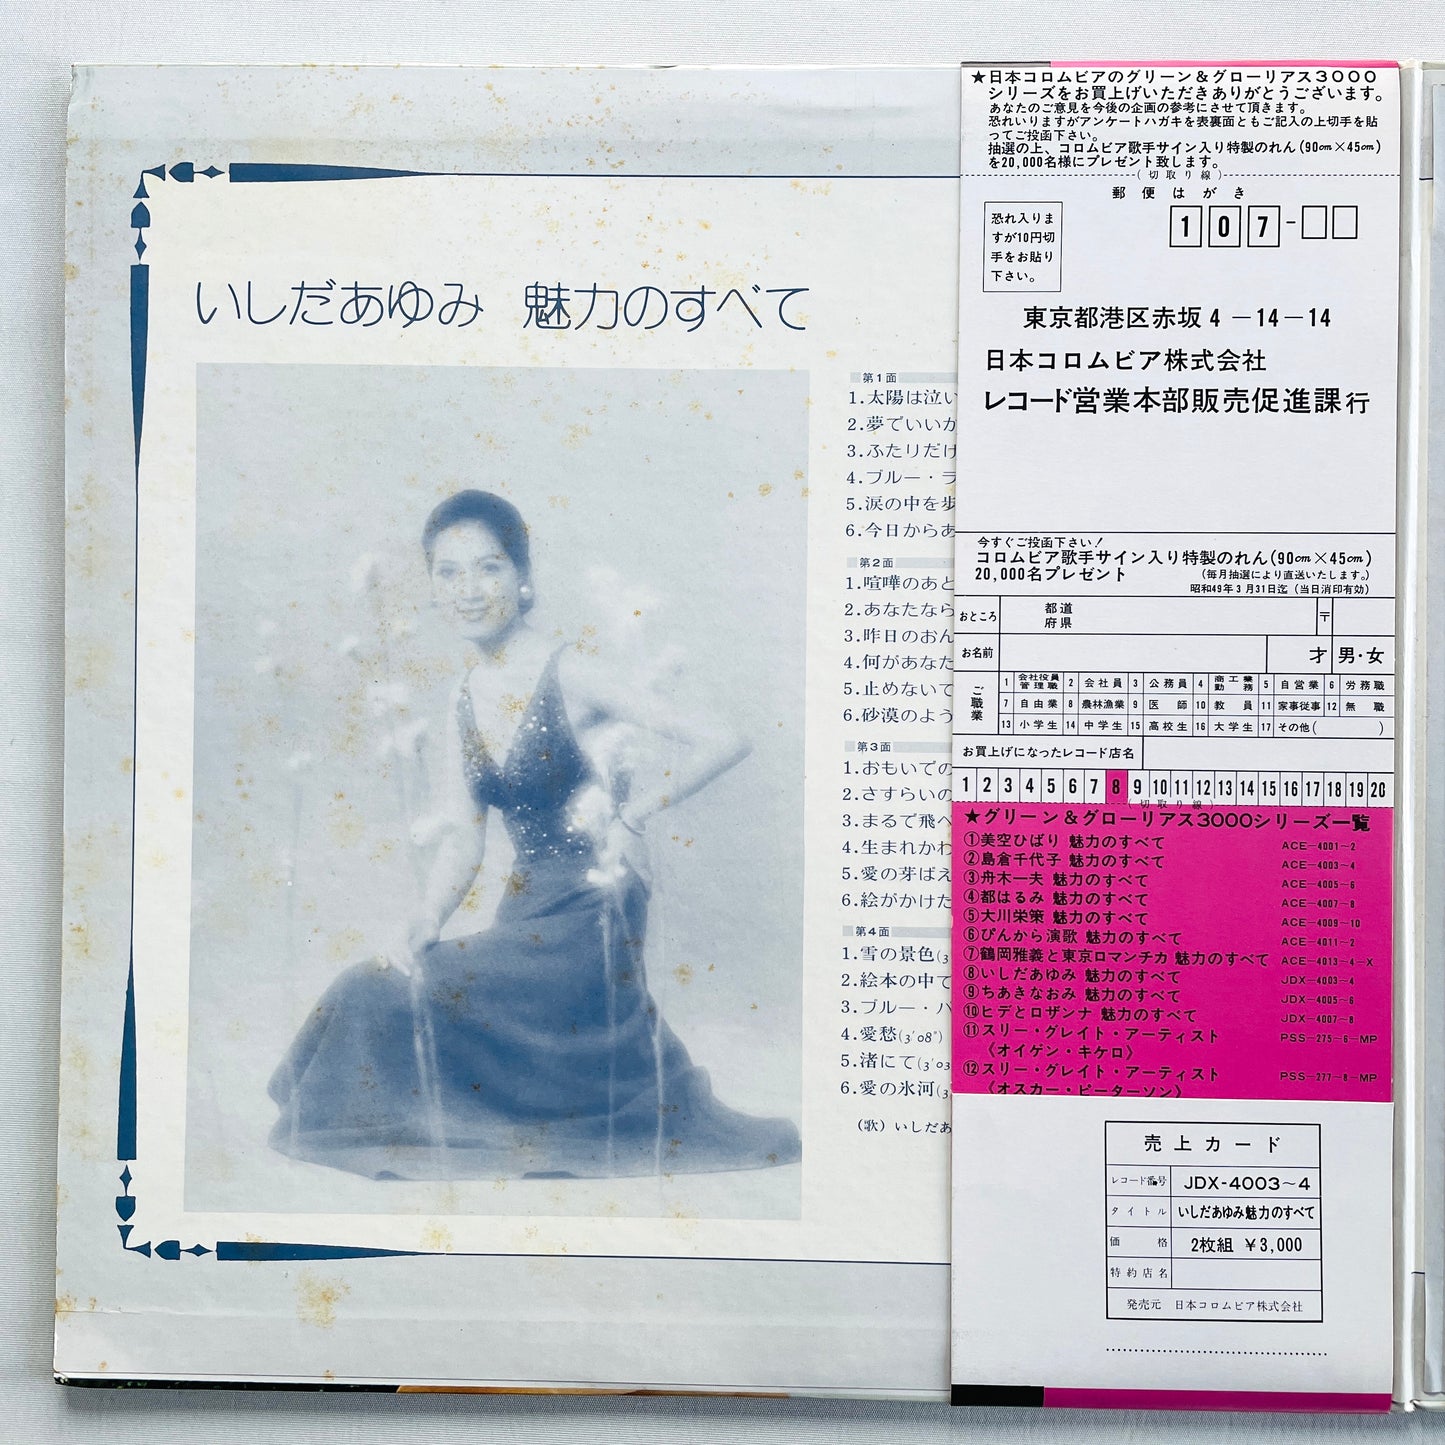 いしだあゆみ 魅力のすべて
第1面
1.太陽は泣い
2.夢でいいか
3.ふたりだけ
4.ブルー・ラ
5.涙の中を歩
6.今日からあ
第2面
1.喧嘩のあと
2.あなたなら
3.昨日のおん
4.何があなた
5.止めないで
6.砂漠のよう
第3面
1.おもいでの
2.さすらいの
3.まるで飛べ
4.生まれかわ
5.愛の芽ばえ
6.絵がかけた
第4面
1.雪の景色(3
2.絵本の中で
3.ブルー・ハ
4.愛愁(3′08″)
5.渚にて(3′03
6.愛の氷河(3
(歌) いしだあ
★日本コロムビアのグリーン&グローリアス3000
シリーズをお買上げいただきありがとうございます。
あなたのご意見を今後の企画の参考にさせて頂きます。
恐れいりますがアンケートハガキを表裏面ともご記入の上切手を貼
ってご投函下さい。
抽選の上、コロムビア歌手サイン入り特製のれん(90cm×45cm)
を20,000名様にプレゼント致します。
(切取り線)
郵便はがき
恐れ入りま
すが10円切
手をお貼り
下さい。
107-
東京都港区赤坂4-14-14
日本コロムビア株式会社
レコード営業本部販売促進課行
今すぐご投函下さい!
コロムビア歌手サイン入り特製のれん(90cm×45cm)
20,000名プレゼント (毎月抽選により直送いたします。)
昭和49年3月31日迄(当日消印有効)
おところ 都道府県 〒
お名前 才 男・女
ご職業
1 会社役員管理職 2 会社員 3 公務員 4 商工業勤務 5 自営業 6 労務職
7 自由業 8 農林漁業 9 医師 10 教員 11 家事従事 12 無職
13 小学生 14 中学生 15 高校生 16 大学生 17 その他( )
お買上げになったレコード店名
1 2 3 4 5 6 7 8 9 10 11 12 13 14 15 16 17 18 19 20
(切取り線)
★グリーン&グローリアス3000シリーズ一覧
①美空ひばり 魅力のすべて ACE-4001~2
②島倉千代子 魅力のすべて ACE-4003~4
③舟木一夫 魅力のすべて ACE-4005~6
④都はるみ 魅力のすべて ACE-4007~8
⑤大川栄策 魅力のすべて ACE-4009~10
⑥ぴんから演歌 魅力のすべて ACE-4011~2
⑦鶴岡雅義と東京ロマンチカ 魅力のすべて ACE-4013~4-X
⑧いしだあゆみ 魅力のすべて JDX-4003~4
⑨ちあきなおみ 魅力のすべて JDX-4005~6
⑩ヒデとロザンナ 魅力のすべて JDX-4007~8
⑪スリー・グレイト・アーティスト PSS-275~6-MP
〈オイゲン・キケロ〉
⑫スリー・グレイト・アーティスト PSS-277~8-MP
〈オスカー・ピーターソン〉
売上カード
レコード番号 JDX-4003~4
タイトル いしだあゆみ魅力のすべて
価格 2枚組 ¥3,000
特約店名
発売元 日本コロムビア株式会社